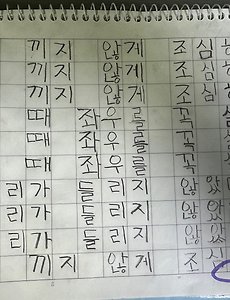 끼지 않게 조심
끼지 않게 조심
끼지 않게 조심
때 좌우를 꼭
때 좌우를 꼭
때 좌우를 꼭
리가 들리지 않았
리가 들리지 않았
리가 들리지 않았
끼지 않게 조심